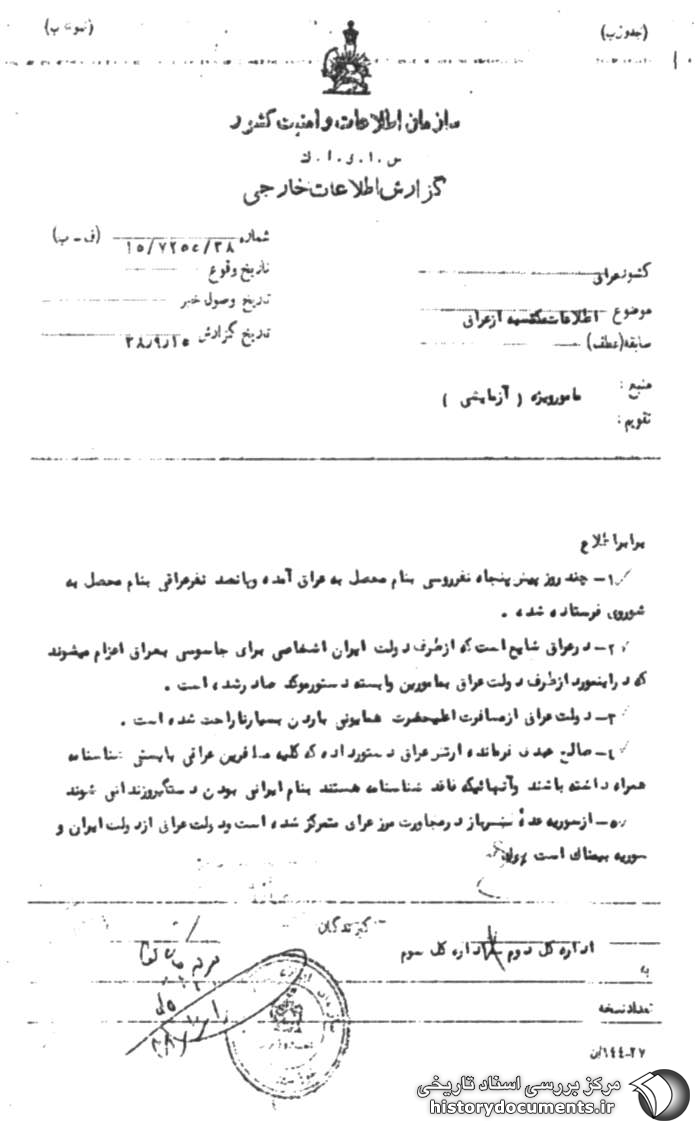 (جدول ب)
(نمونه ب)
سازمان اطلاعات و امنیت کشور
س.ا.و.ا.ک
گزارش اطلاعات خارجی
شماره ۱۵/۷۲۵۲/۳۸ (ف-ب)
کشور عراق
تاریخ وقوع
موضوع اطلاعات مکتسبه از عراق
تاریخ وصول خبر
سابقه (عطف)
تاریخ گزارش ۳۸/۹/۱۵
منبع: مامور ویژه (آزمایشی)
تقویم:
برابر اطلاع
۱- چند روز پیش پنجاه نفر روسی بنام محصل به عراق آمده و پانصد نفر عراقی بنام محصل به
شوروی فرستاده شده.
۲- در عراق شایع است که از طرف دولت ایران اشخاصی برای جاسوسی بعراق اعزام میشوند
که در اینمورد از طرف دولت عراق بمامورین وابسته دستور موکد صادر شده است.
۳- دولت عراق از مسافرت اعلیحضرت همایونی باردن بسیار ناراحت شده است.
۴- صالح عبدی فرمانده ارتش عراق دستور داده که کلیه مسافرین عراقی بایستی شناسنامه
همراه داشته باشند و آنهائیکه فاقد شناسنامه هستند بنام ایرانی بودن دستگیر و زندانی شوند
۵- از سوریه عده‌ای سرباز در مجاورت مرز عراق متمرکز شده است و دولت عراق از دولت ایران و
سوریه بیمناک است
گیرندگان
اداره کل دوم اداره کل سوم
به
تعداد نسخه
۲۷-۱۴۴/ن
مرکز بررسی اسناد تاریخی
historydocuments.ir